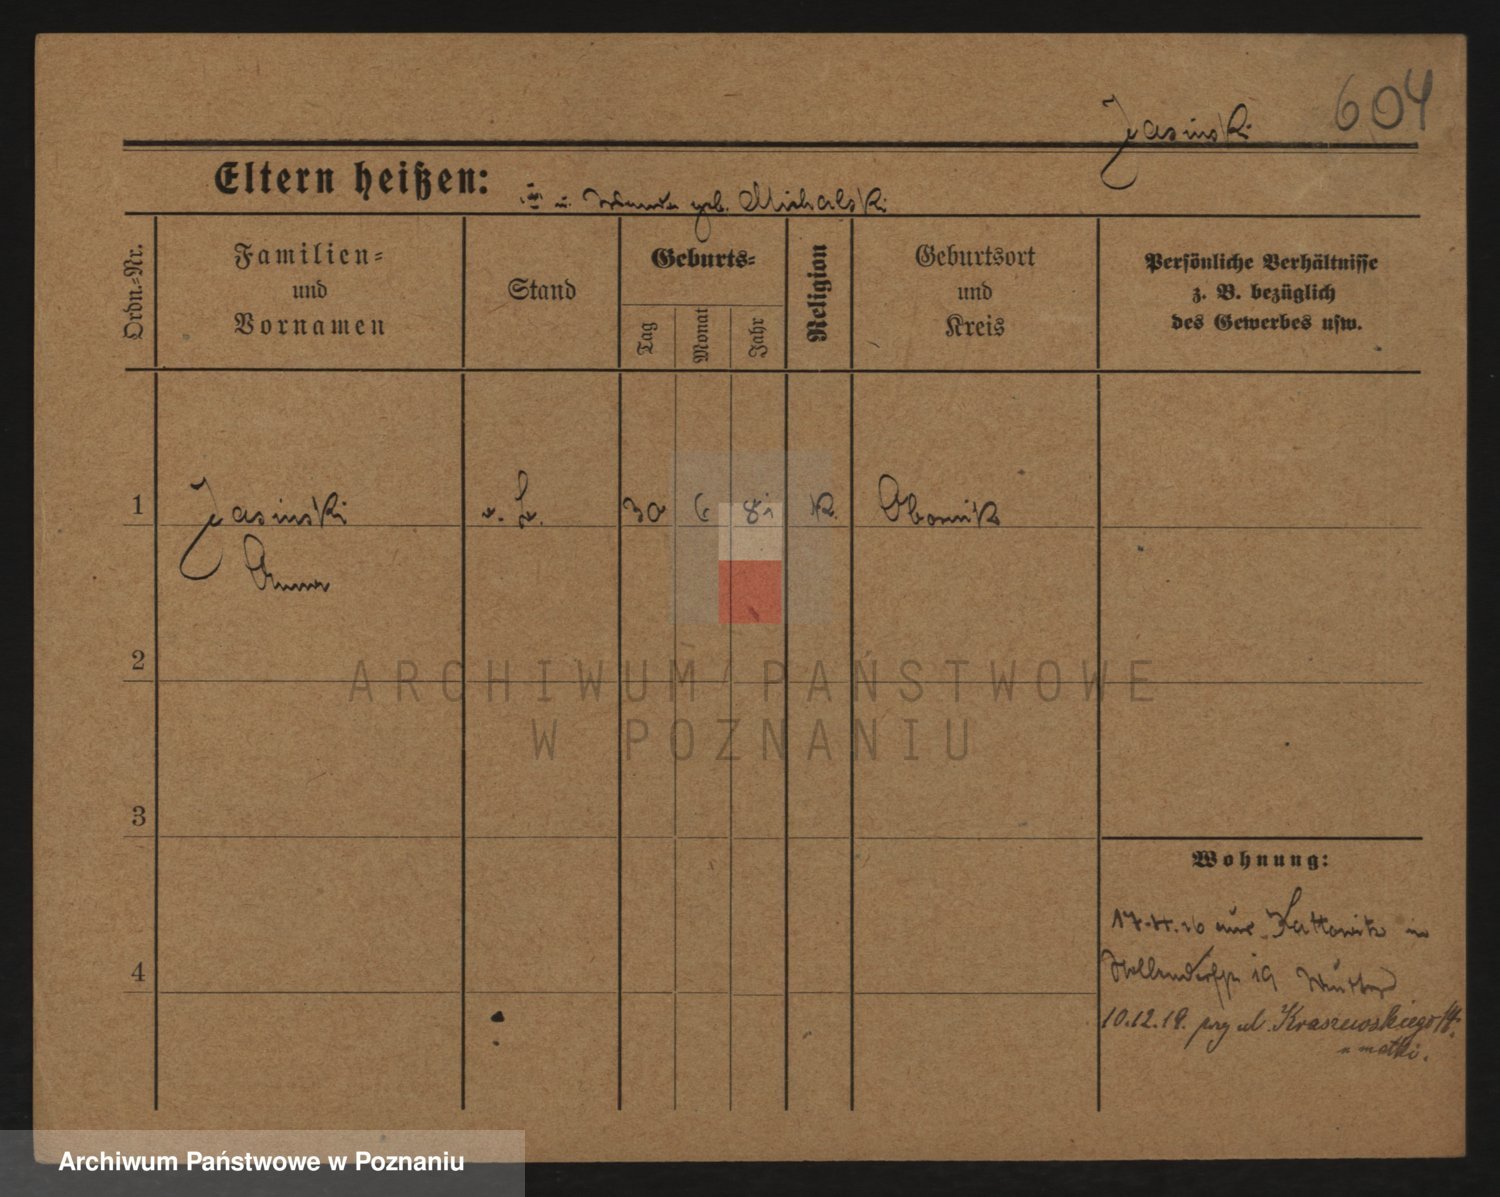 604
Jasinski
Eltern heißen: u. Wanda geb. Michalski
Ordn.-Nr.
Familien-
und
Vornamen
Stand
Geburts-
Tag
Monat
Jahr
Religion
Geburtsort
und
Kreis
Persönliche Verhältnisse
z. B. bezüglich
des Gewerbes usw.
1 Jasinski 30 6 81 K. Obornik
Anna
2
3
4
Wohnung:
aus Kattowitz in
19 Mutter
10.12.19. przy ul. Kraszewskiego
u matki.
ARCHIWUM PAŃSTWOWE
W POZNANIU
Archiwum Państwowe w Poznaniu